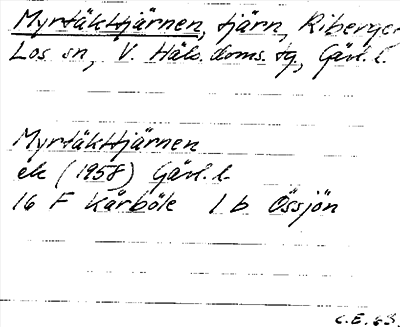 Myrtäkttjärnen, tjärn, Riberge
Los sn, V. Häls. doms. sg, Gävl. l.
Myrtäkttjärnen
ek (1958) Gävl. l.
16 F Kårböle 1 b Össjön
C.E. 63